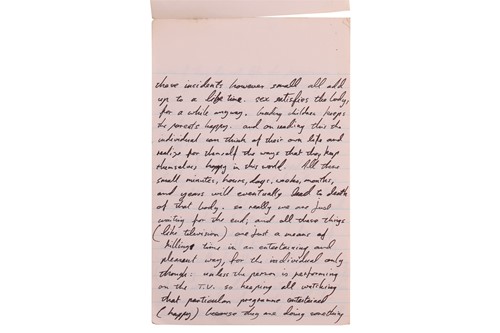 these incidents however small all add
up to a life time. sex satisfies the body,
for a while anyway, leading children keeps
the parents happy. and on reading this the
individual can think of their own life and
realize for themself the ways that they keep
themselves happy in this world. All these
small minutes, hours, days, weeks, months,
and years will eventually lead to death
of that body. so really we are just
waiting for the end, and all these things
(like television) are just a means of
killing time in an entertaining and
pleasant way, for the individual only
though. unless the person is performing
on the T.V. so keeping all watching
that particular programme entertained
(happy) because they are doing something